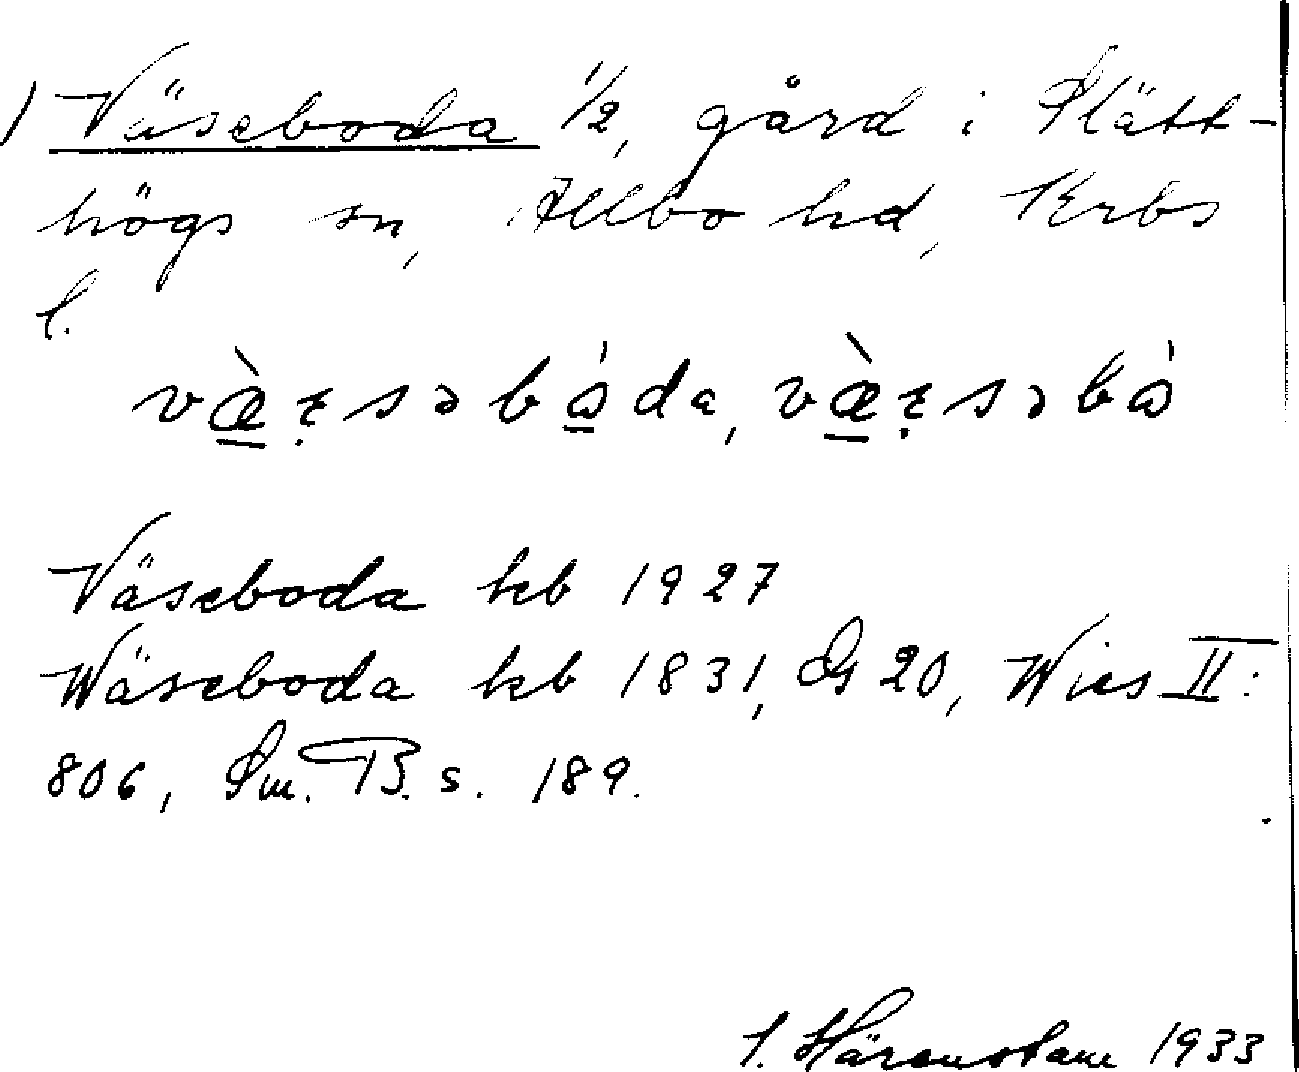 ) Väseboda 1/2, gård i Slätt-
högs sn, Allbo hd, Krbs
l.
væ̀ɛ̣səbódɑ, væ̀ɛ̣səbó
Väseboda kb 1927
Wäseboda kb 1831, GS 20, Wies II:
806, Sm. B. s. 189.
S. Härenstam 1933